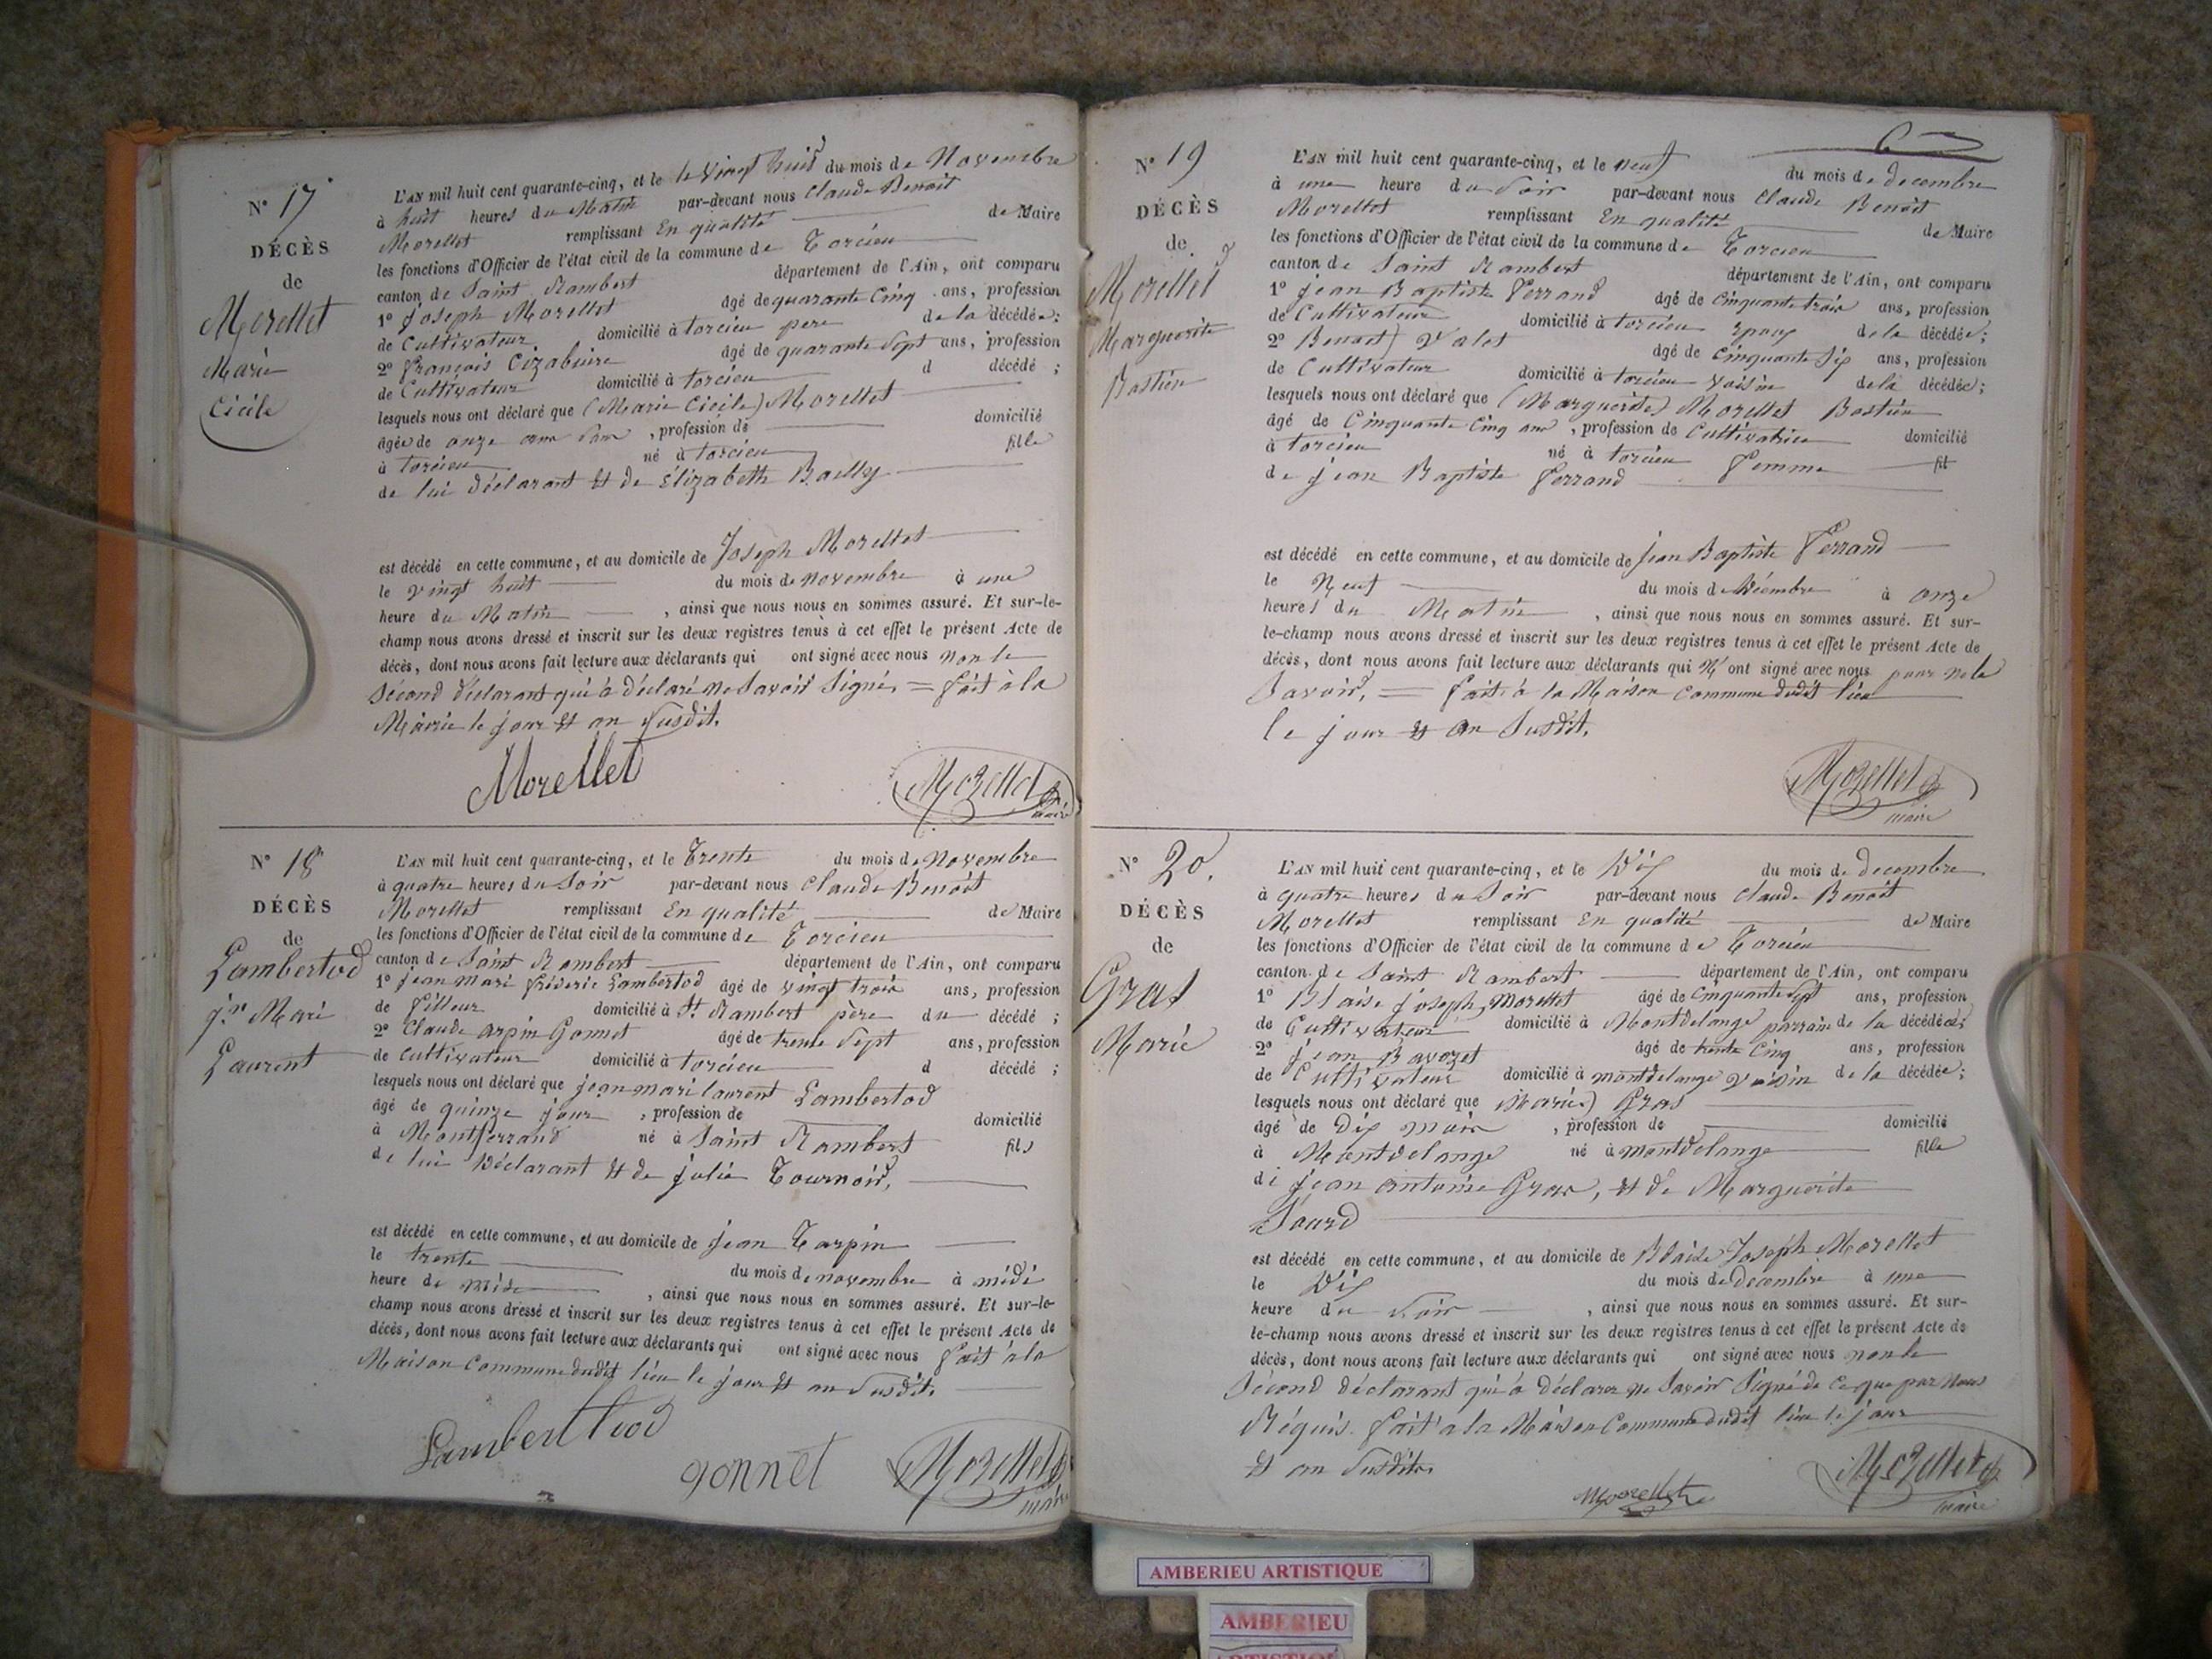 N° 17
DÉCÈS
de
Morellet
Marie
Cicile
L'AN mil huit cent quarante-cinq, et le le vingt huit du mois de Novembre
à huit heures du Matin par-devant nous Claude Benoit
Morellet remplissant En qualité de Maire
les fonctions d'Officier de l'état civil de la commune de Torcieu
canton de Saint Rambert département de l'Ain, ont comparu
1° Joseph Morellet âgé de quarante Cinq ans, profession
de Cultivateur domicilié à torcieu pere de la décédée;
2° François âgé de quarante Sept ans, profession
de Cultivateur domicilié à torcieu d décédé ;
lesquels nous ont déclaré que (Marie Cicile) Morellet
âgée de onze ans , profession de domicilié
à torcieu né à torcieu fille
de lui déclarant et de Élizabeth Bailly
est décédé en cette commune, et au domicile de Joseph Morellet
le vingt huit du mois de novembre à une
heure du Matin , ainsi que nous nous en sommes assuré. Et sur-le-
champ nous avons dressé et inscrit sur les deux registres tenus à cet effet le présent Acte de
décès, dont nous avons fait lecture aux déclarants qui ont signé avec nous non le
Second déclarant qui à déclaré ne Savoir Signé, = fait à la
Mairie le jour et an Susdit.
Morellet
Morellet
maire
N° 18
DÉCÈS
de
Lambertod
jn Mari
Laurent
L'AN mil huit cent quarante-cinq, et le Trente du mois de Novembre
à quatre heures du Soir par-devant nous Claude Benoit
Morellet remplissant En qualité de Maire
les fonctions d'Officier de l'état civil de la commune de Torcieu
canton de Saint Rambert département de l'Ain, ont comparu
1° jean Mari fréderic Lambertod âgé de vingt trois ans, profession
de domicilié à St Rambert père du décédé ;
2° Claude arpin Gonnet âgé de trente Sept ans, profession
de cultivateur domicilié à torcieu d décédé ;
lesquels nous ont déclaré que jean mari laurent Lambertod
âgé de quinze jour , profession de domicilié
à Montferrand né à Saint Rambert fils
de lui Déclarant et de julie Tournoir,
est décédé en cette commune, et au domicile de jean Tarpin
le trente du mois de novembre à midi
heure de midi , ainsi que nous nous en sommes assuré. Et sur-le-
champ nous avons dressé et inscrit sur les deux registres tenus à cet effet le présent Acte de
décès, dont nous avons fait lecture aux déclarants qui ont signé avec nous fait à la
Maison Commune dudit lieu le jour et an Susdit.
Lambertod
gonnet
Morellet
maire
N° 19
DÉCÈS
de
Morellet
Marguerite
Bastien
L'AN mil huit cent quarante-cinq, et le neuf du mois de decembre
à une heure du Soir par-devant nous Claude Benoit
Morellet remplissant En qualité de Maire
les fonctions d'Officier de l'état civil de la commune de Torcieu
canton de Saint Rambert département de l'Ain, ont comparu
1° jean Baptiste Ferrand âgé de Cinquante trois ans, profession
de Cultivateur domicilié à torcieu Epoux de la décédée;
2° Benoit) Valet âgé de Cinquante Six ans, profession
de Cultivateur domicilié à torcieu voisin de la décédée;
lesquels nous ont déclaré que (Marguerite) Morellet Bastien
âgé de Cinquante Cinq ans , profession de Cultivatrice domicilié
à torcieu né à torcieu Femme fil
de jean Baptiste Ferrand
est décédé en cette commune, et au domicile de jean Baptiste Ferrand
le Neuf du mois de Décembre à onze
heures du Matin , ainsi que nous nous en sommes assuré. Et sur-
le-champ nous avons dressé et inscrit sur les deux registres tenus à cet effet le présent Acte de
décès, dont nous avons fait lecture aux déclarants qui N'ont signé avec nous pour ne le
Savoir, = fait à la Maison Commune dudit lieu
le jour et an Susdit.
Morellet
maire
N° 20.
DÉCÈS
de
Gras
Marie
L'AN mil huit cent quarante-cinq, et le Dix du mois de decembre
à quatre heures du Soir par-devant nous Claude Benoit
Morellet remplissant En qualité de Maire
les fonctions d'Officier de l'état civil de la commune de Torcieu
canton de Saint Rambert département de l'Ain, ont comparu
1° Blaise joseph Morellet âgé de Cinquante Sept ans, profession
de Cultivateur domicilié à Montdelange parrain de la décédée;
2° jean Bavozet âgé de trente Cinq ans, profession
de Cultivateur domicilié à montdelange voisin de la décédée;
lesquels nous ont déclaré que (Marie) Gras
âgé de Dix mois , profession de domicilié
à Montdelange né à montdelange fille
de jean antoine Gras, et de Marguerite
Sourd
est décédé en cette commune, et au domicile de Blaise Joseph Morellet
le Dix du mois de decembre à une
heure du Soir , ainsi que nous nous en sommes assuré. Et sur-
le-champ nous avons dressé et inscrit sur les deux registres tenus à cet effet le présent Acte de
décès, dont nous avons fait lecture aux déclarants qui ont signé avec nous non le
Second déclarant qui à déclarer ne Savoir Signé de Ce que par Nous
Réquis. fait à la Maison Commune dudit lieu le jour
et an Susdits.
Morellet
Morellet
maire
AMBERIEU ARTISTIQUE
AMBERIEU
ARTISTIQUE